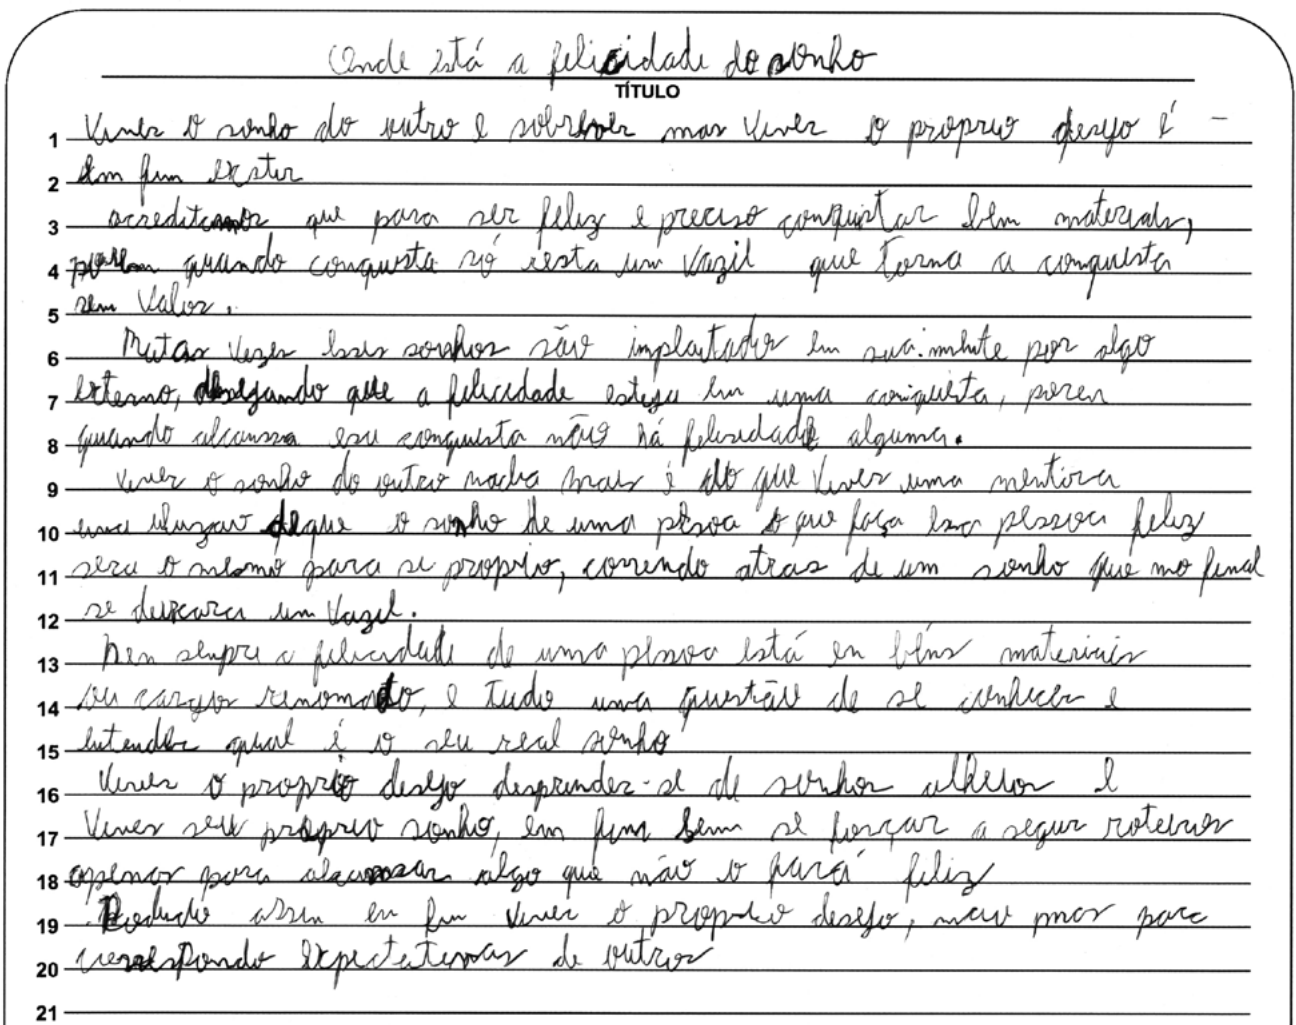 Onde está a felicidade do sonho
TÍTULO
1 Viver o sonho do outro é sobreviver mas viver o proprio desejo é
2 em fim existir
3 acreditamos que para ser feliz e preciso conquistar bem materiais,
4 porem quando conquista só resta um vazil que torna a conquista
5 sem valor.
6 Muitas vezes esses sonhos são implantados em sua mente por algo
7 externo, desejando que a felicidade esteja em uma conquista, poren
8 quando alcanssa essa conquista não há felicidade alguma.
9 Viver o sonho do outro nada mais é do que viver uma mentira
10 uma iluzão de que o sonho de uma pessoa o que faça essa pessoa feliz
11 sera o mesmo para si proprio, correndo atras de um sonho que no final
12 se deixara um vazil.
13 Nen senpre a felicidade de uma pessoa está en bens materiais
14 ou cargos renomado, e tudo uma questão de se conhecer e
15 entender qual é o seu real sonho
16 Viver o proprio desejo desprender-se de sonhos alheios e
17 viver seu proprio sonho, em fim sem se forçar a seguir roteiros
18 apenas para alcansar algo que não o fará feliz
19 assin en fim viver o proprio desejo, nao mas para
20 expectativas de outros
21